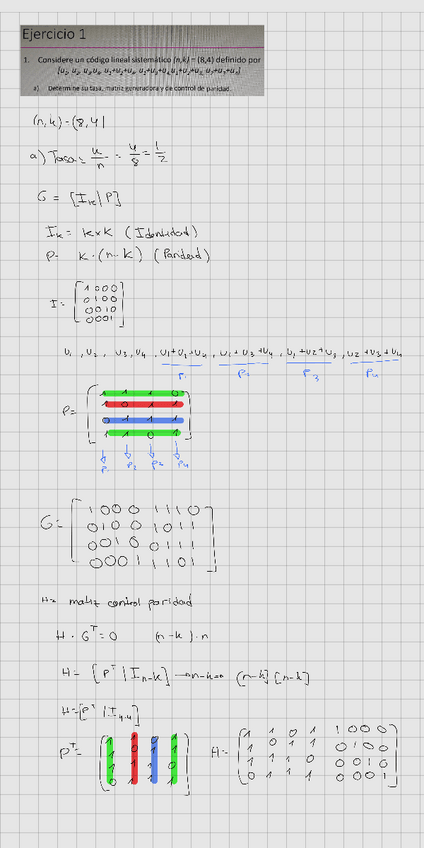 Ejercicio 1
1. Considere un código lineal sistemático (n,k) = (8,4) definido por
a) Determine su tasa, matriz generadora y de control de paridad.
(n,k) = (8,4)
a) Tasa = k/n = 4/8 = 1/2
G = [Ik | P]
Ik = k×k (Identidad)
P = k·(n-k) (Paridad)
I = [
1 0 0 0
0 1 0 0
0 0 1 0
0 0 0 1
]
U1, U2, U3, U4, U1+U2+U4, U1+U3+U4, U1+U2+U3, U2+U3+U4
P1 P2 P3 P4
P = [
1 1 1 0
1 0 1 1
0 1 1 1
1 1 0 1
]
P1 P2 P3 P4
G = [
1 0 0 0 1 1 1 0
0 1 0 0 1 0 1 1
0 0 1 0 0 1 1 1
0 0 0 1 1 1 0 1
]
H = matriz control paridad
H · G^T = 0 (n-k)·n
H = [P^T | I n-k] (n-k] [n-k]
H = [P^T | I 4·4]
P^T = [
1 1 0 1
1 0 1 1
1 1 1 0
0 1 1 1
]
H = [
1 1 0 1 1 0 0 0
1 0 1 1 0 1 0 0
1 1 1 0 0 0 1 0
0 1 1 1 0 0 0 1
]